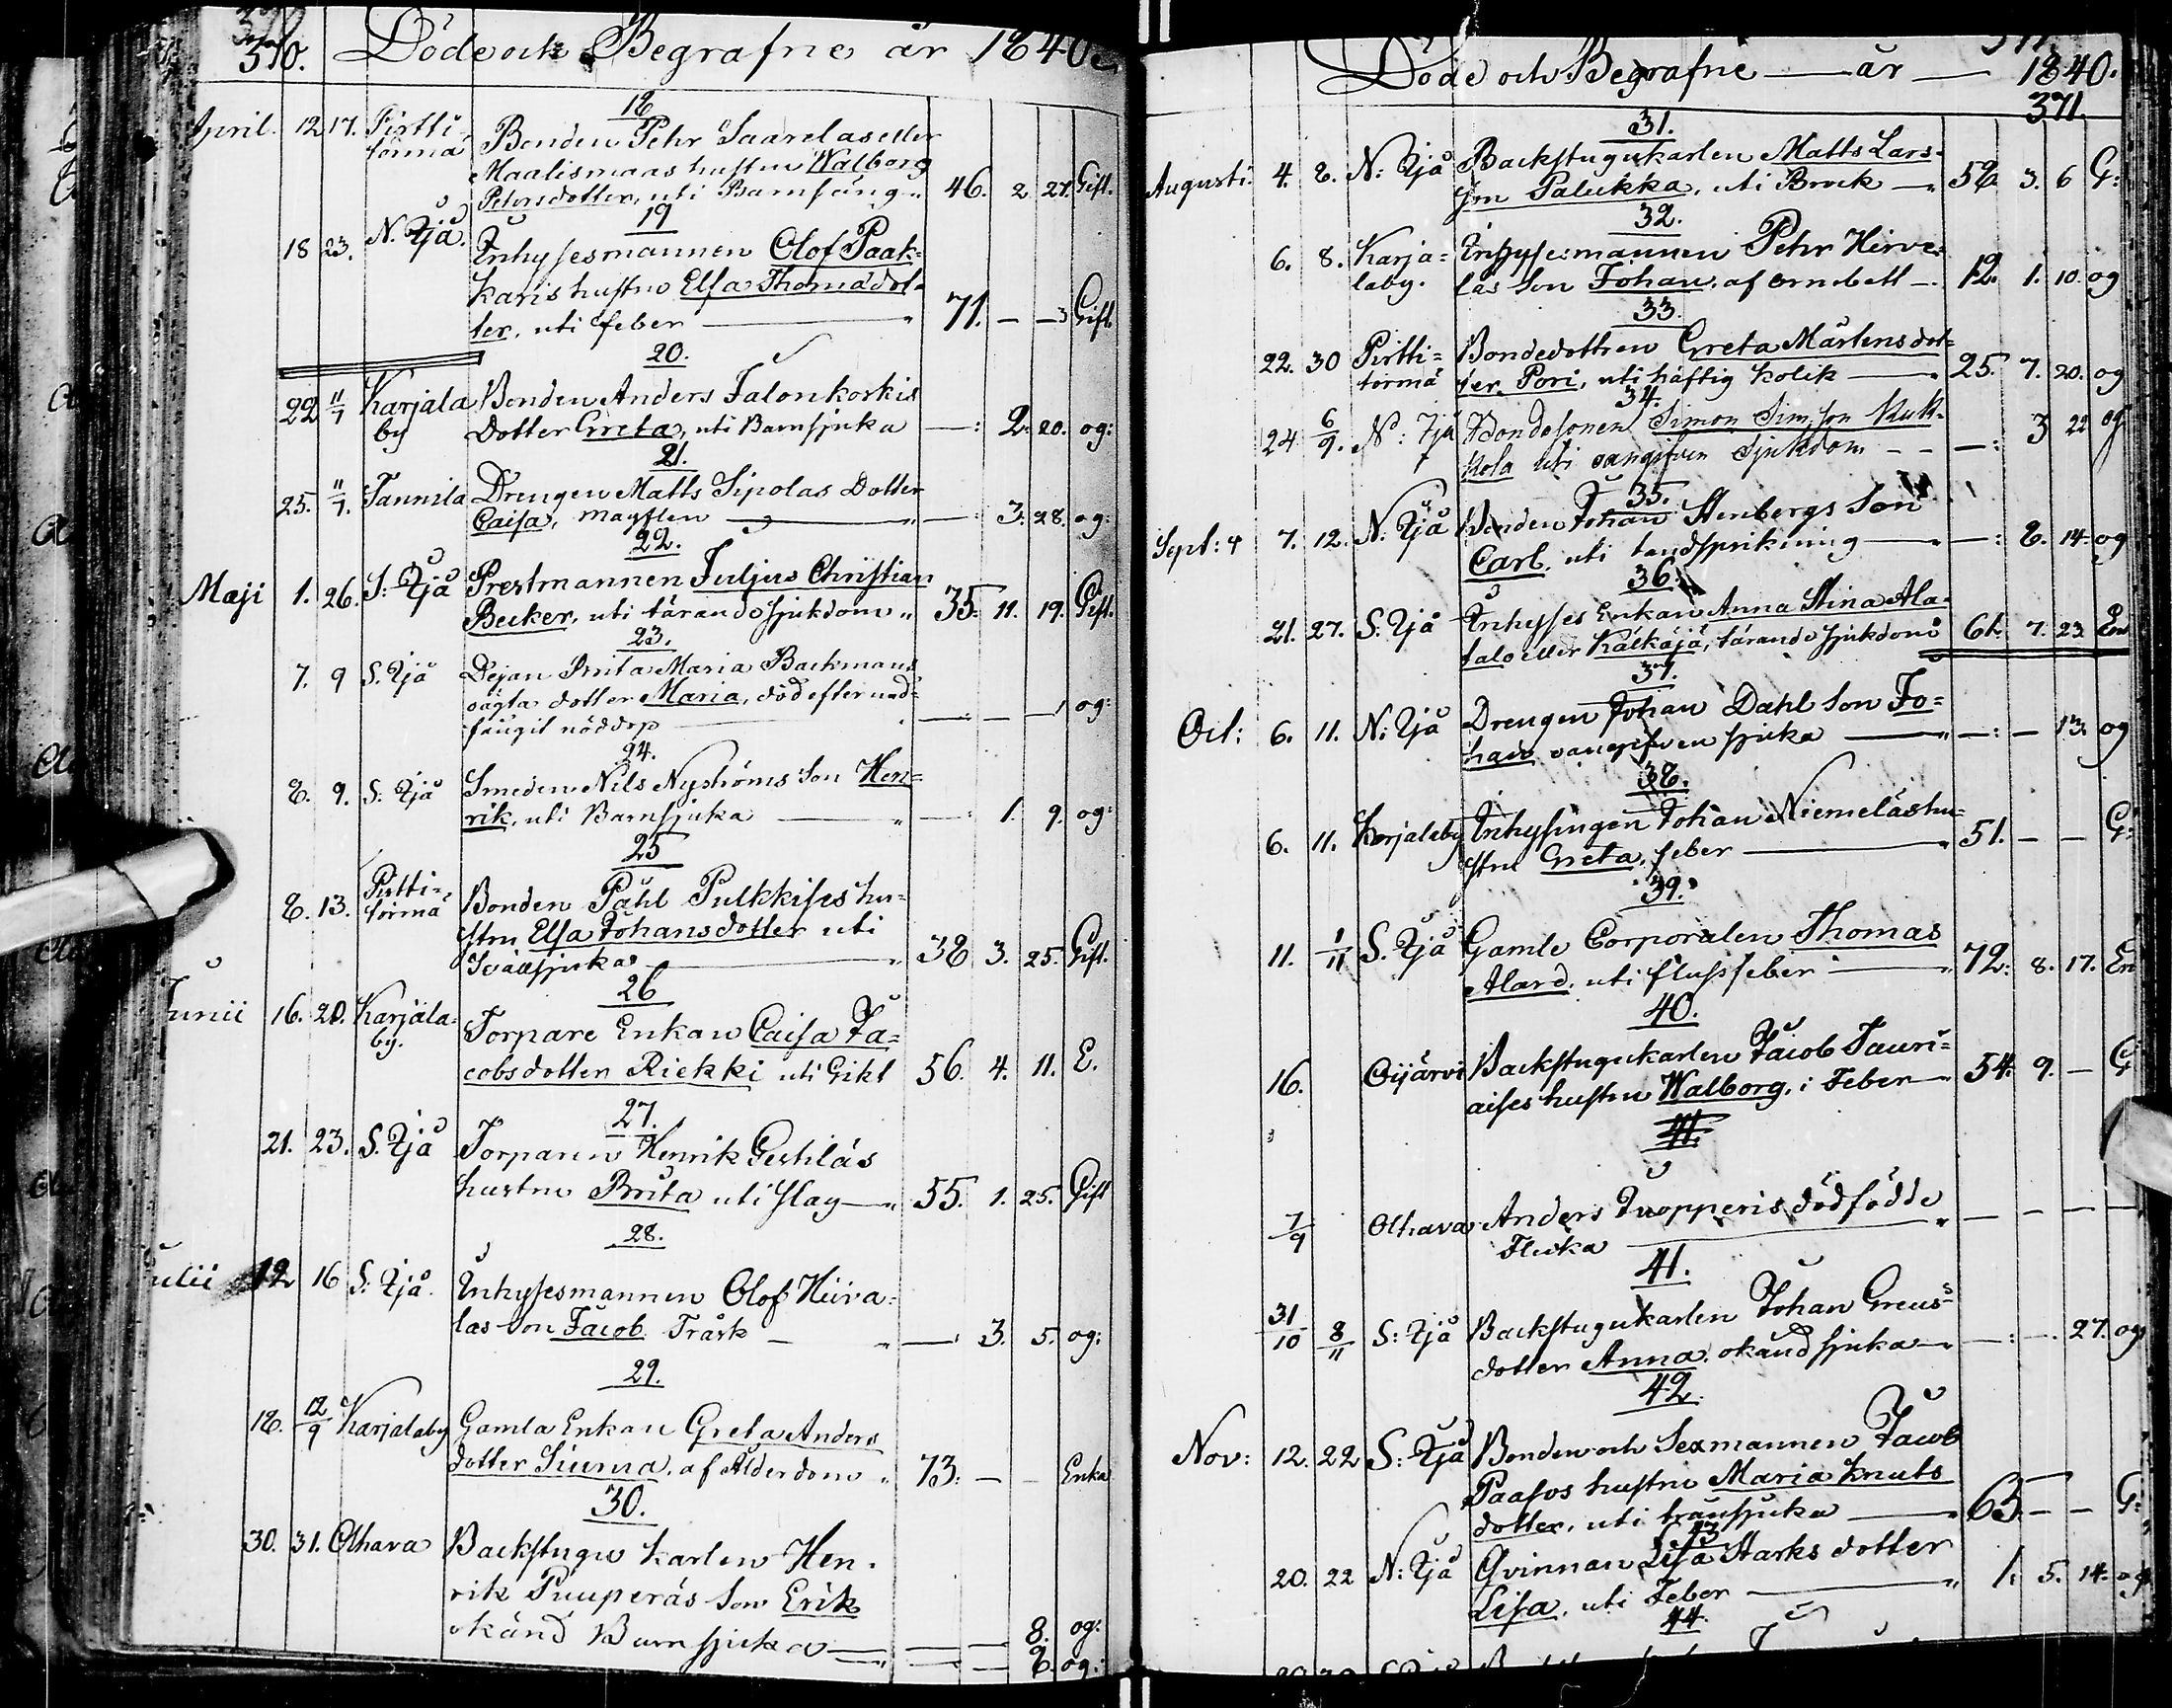 370.
Döde och Begrafne år 1840.
18
April. 12 17. Pirtti- Bonden Pehr Saarelas eller
törmä Maalismaas hustru Walborg
Petersdotter, uti Barnsäng 46. 2 27. Gift.
19
18 23. N. Ijå. Inhysesmannen Olof Paak-
karis hustru Elsa Thomædot-
ter, uti feber 71. — —3 Gift
20.
22 11/7 Karjala Bonden Anders Jalonkorkis
by Dotter Greta, uti Barnsjuka —: 2. 20. og:
21.
25. 11/7. Tannila Drengen Matts Sipolas Dotter
Caisa, 3. 28. og:
22.
Maji 1. 26. S: Ijå Prestmannen Juljus Christian
Becker, uti tärande sjukdom 35. 11. 19. Gift.
23.
7. 9 S. Ijå Dejan Brita Maria Backmans
oägta dotter Maria, död efter und-
fångit nöddop — — —1 og:
24.
8. 9. S. Ijå Smeden Nils Nyströms Son Hen-
rik, uti Barnsjuka —: 1. 9. og:
25
8. 13. Pirtti- Bonden Påhl Pulkkises hu-
törmä stru Elsa Johansdotter uti
38 3. 25. Gift.
26
Junii 16. 20. Karjala- Torpare Enkan Caisa Ja-
by. cobsdotter Riekki uti Gikt 56. 4. 11. E.
27.
21. 23. S. Ijå Torparen Henrik Gestiläs
hustru Brita uti slag 55. 1. 25. Gift
28.
Julii 12 16 S: Ijå. Inhysesmannen Olof Hiiva-
las son Jacob. Tråsk — 3. 5. og:
29.
18. 12/9 Karjalaby Gamla Enkan Greta Anders
dotter Siurua. af Ålderdom 73. — — Enka
30.
30. 31. Olhava Backstugu karlen Hen-
rik Puuperäs Son Erik
okänd Barnsjuka — — 8. og:
8. og:
Döde och Begrafne — år — 1840.
371.
31.
Augusti. 4. 8. N: Ijå Backstugukarlen Matts Lars-
son Palukka, uti Bråck — 58 3. 6 G:
32.
6. 8. Karja- Inhysesmannen Pehr Hirve-
laby. läs Son Johan. af ormbett — 12. 1. 10. og
33.
22. 30 Pirtti- Bondedottren Greta Mårtensdot-
törmä ter Pori, uti häftig kolik 25. 7. 20. og
34.
24. 6/9. N: Ijå Bondesonen Simon Simsson Kuk-
kola uti oangifven Sjukdom — — —: 3 22 og
35.
Sept: 7. 12. N: Ijå Bonden Johan Stenbergs Son
Carl, uti tandsprickning —: 8. 14. og
36.
21. 27. S. Ijå Inhyses Enkan Anna Stina Ala-
talo eller Kälkäjä, tärande sjukdom 61. 7. 23. Enk
37.
Oct: 6. 11. N: Ijå Drengen Johan Dahl son Jo-
han oangifven sjuka —: — 13. og
38.
6. 11. Karjalaby Inhysingen Johan Niemeläs hu-
stru Greta, feber 51. — — G:
39.
11. 1/11 S. Ijå Gamle Corporalen Thomas
Alard. uti flussfeber 72. 8. 17. En
40.
16. Oijärvi Backstugukarlen Jacob Tauri-
aises hustru Walborg, i Feber 54. 9. — G
41.
7/9 Olhava Anders Kuopperis dödfödde
Flicka — — — —
41.
31/10 8/11 S: Ijå Backstugukarlen Johan Greus
dotter Anna. okänd sjuka —: — 27. og
42.
Nov: 12. 22 S: Ijå Bonden och Sexmannen Jacob
Paasos hustru Maria Knuts
dotter, uti 63. — — G:
43
20. 22 N: Ijå Qvinnan Lisa Starks dotter
Lisa. uti Feber 1. 5. 14. og
44.